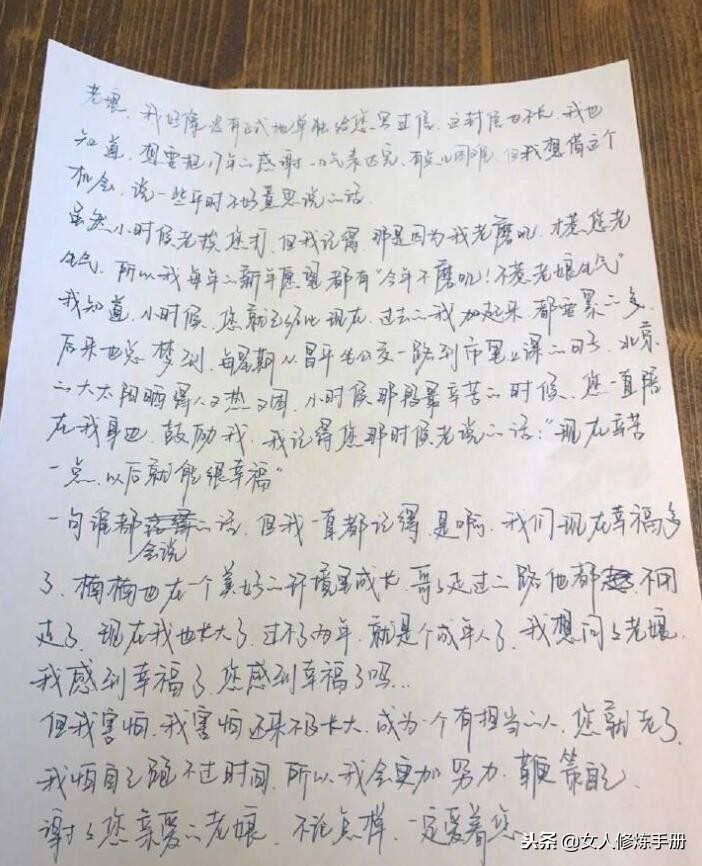 老娘，我好像没有正式地单独给您写过信，这封信也不长，我也
知道，想要把17年的感谢一口气表达完，有点儿困难，但我想借这个
机会，说一些平时不好意思说的话。
虽然小时候老挨您打，但我记得，那是因为我老磨叽，才惹您老
生气，所以我每年的新年愿望都有“今年不磨叽！不惹老娘生气”
我知道，小时候，您就已经比现在，过去的我加起来，都要累的多，
后来也总梦到，每星期从昌平坐公交一路到市里上课的日子，北京
的大太阳晒得人又热又困，小时候那段最辛苦的时候，您一直陪
在我身边，鼓励我，我记得您那时候老说的话：“现在辛苦
一点，以后就能很幸福”
一句谁都会说的话，但我一直都记得，是啊，我们现在幸福多
了，楠楠也在一个美好的环境里成长，哥哥走过的路他都不用
走了，现在我也长大了，过不了两年，就是个成年人了，我想问问老娘，
我感到幸福了，您感到幸福了吗...
但我害怕，我害怕还来不及长大，成为一个有担当的人，您就老了，
我怕自己跑不过时间，所以我会更加努力，鞭策自己，
谢谢您亲爱的老娘，不论怎样，一定爱着您
头条@女人修炼手册